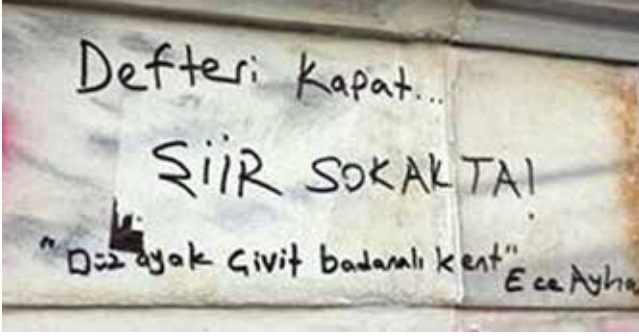 Defteri Kapat...
ŞİİR SOKAKTA!
"Düz ayak çivit badanalı kent"
Ece Ayha